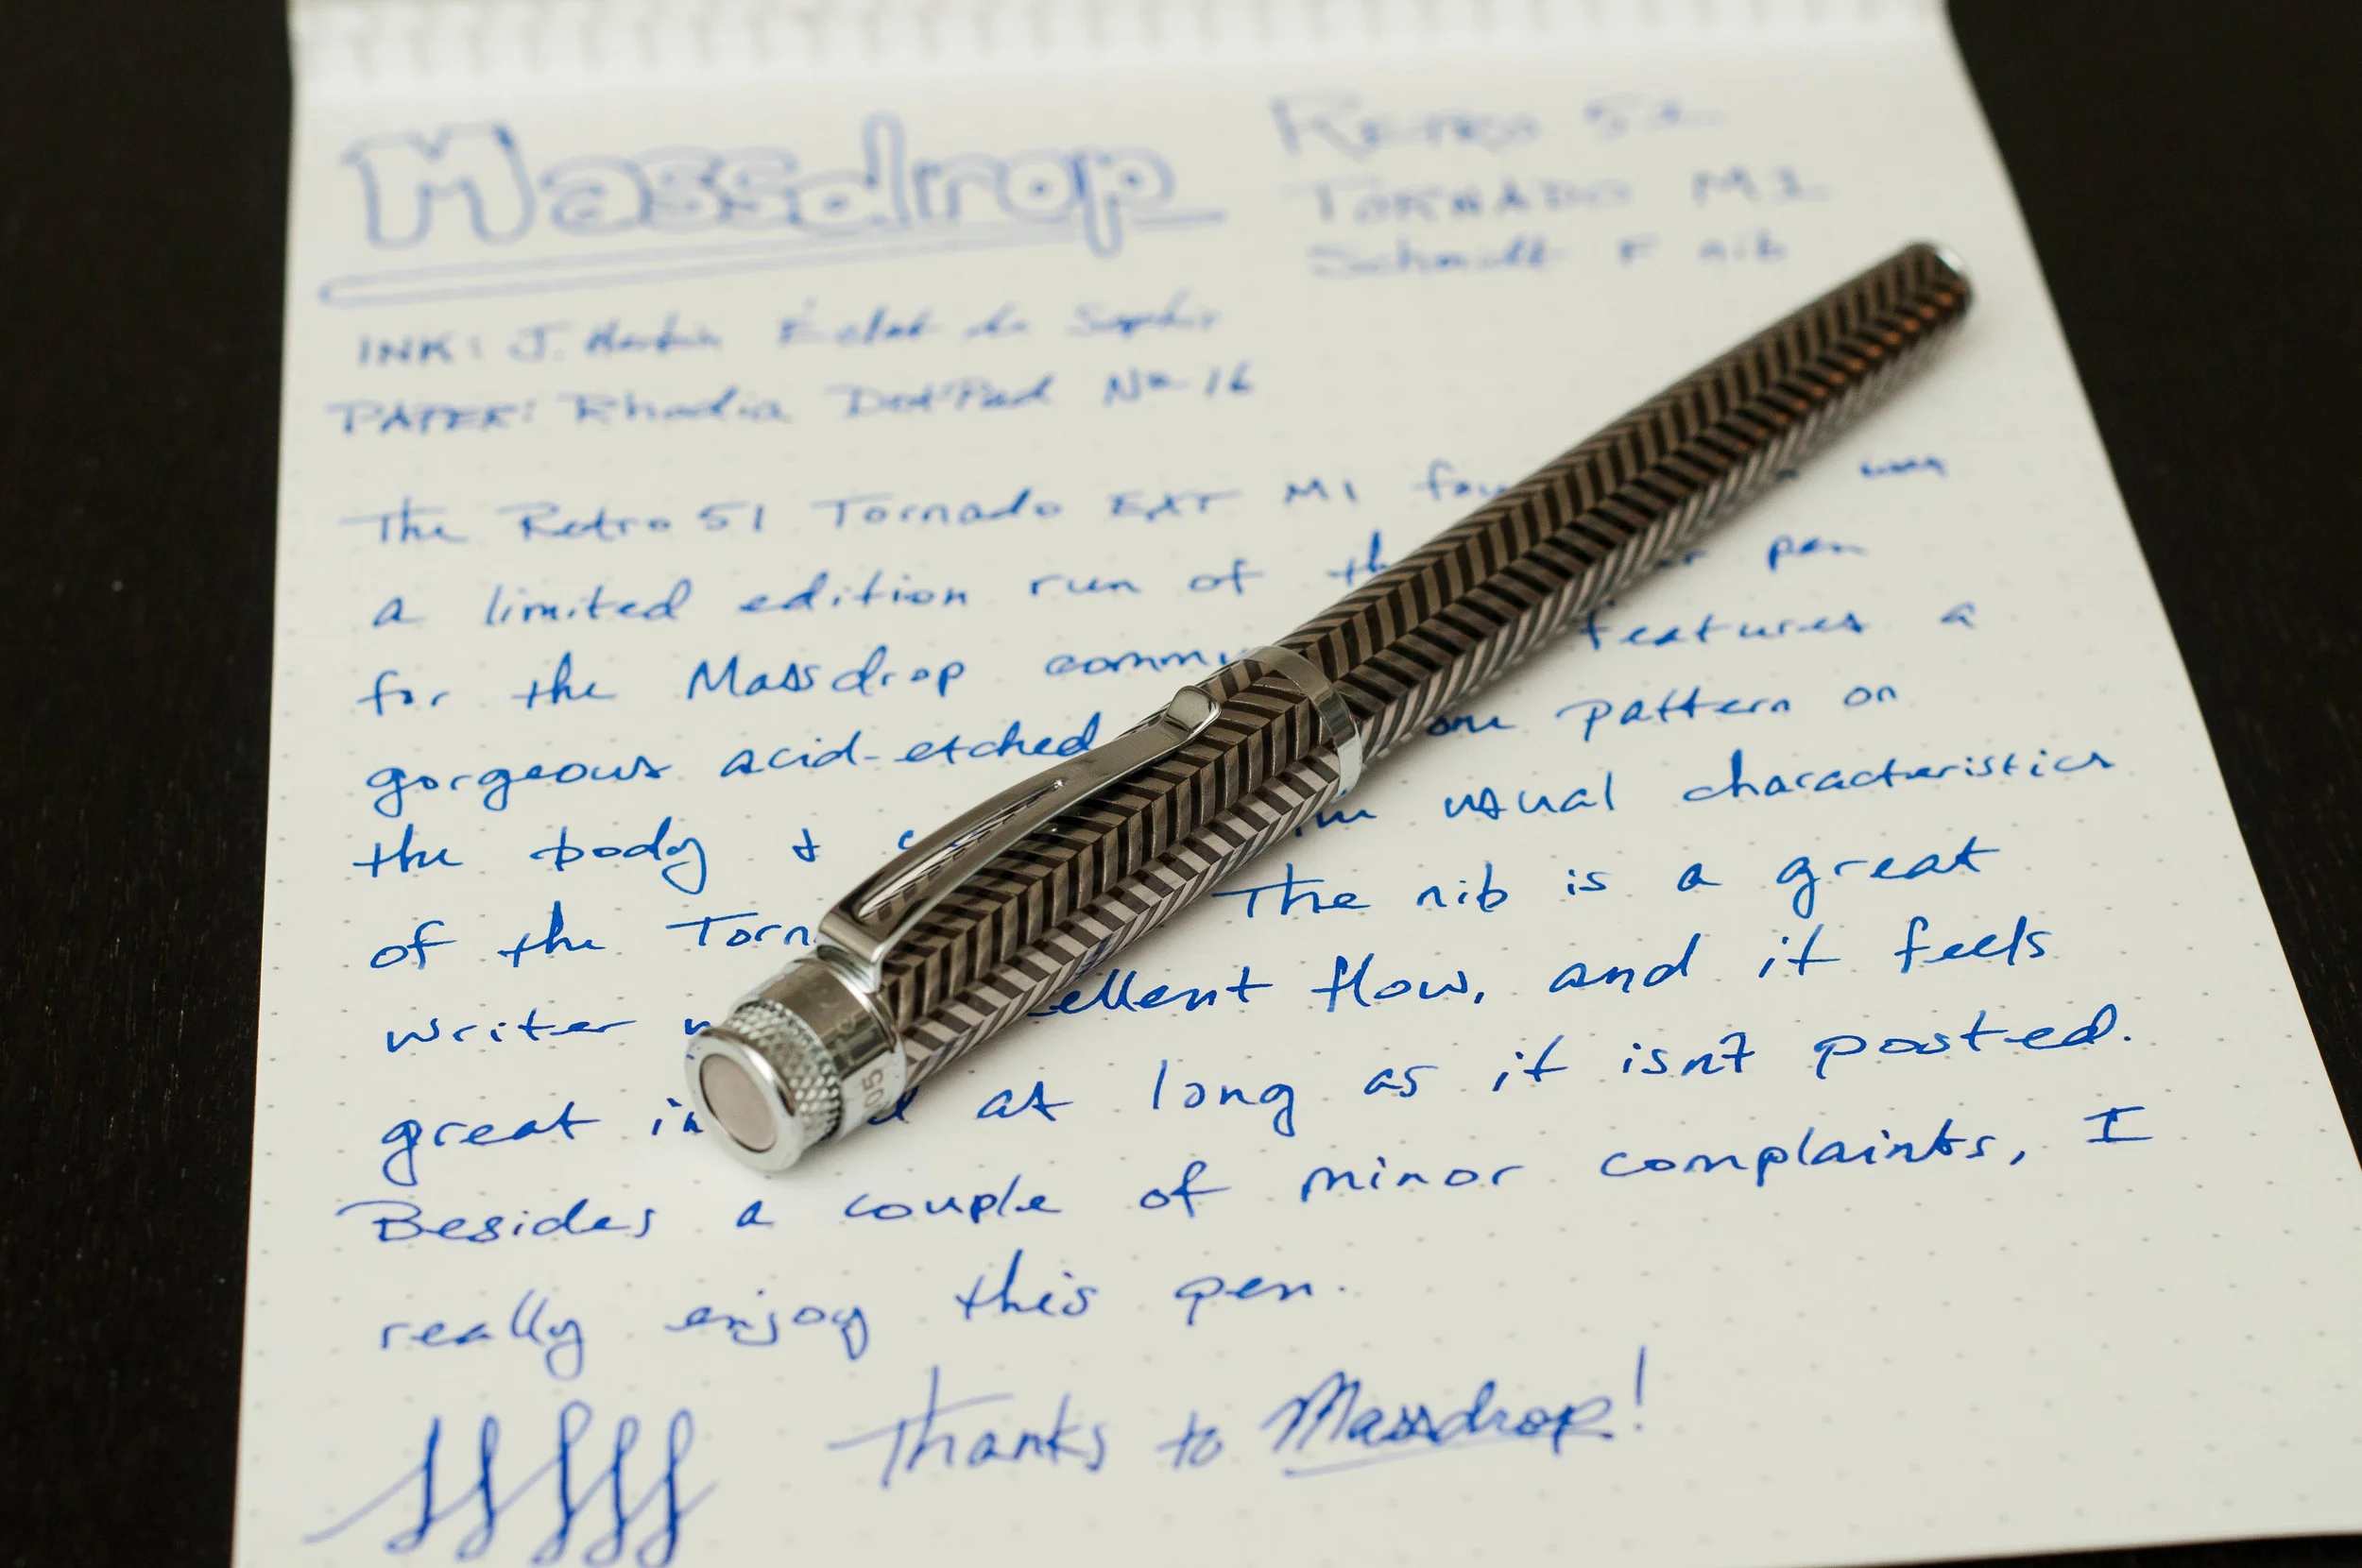 Massdrop
RETRO 51
TORNADO M1
Schmidt F nib
INK: J. Herbin Éclat de Saphir
PAPER: Rhodia DotPad No 16
The Retro 51 Tornado EXT M1
a limited edition run of pen
for the Massdrop features a
gorgeous acid-etched pattern on
the body & usual characteristics
of the The nib is a great
writer flow, and it feels
great as long as it isn't posted.
Besides a couple of minor complaints, I
really enjoy this pen.
Thanks to Massdrop!